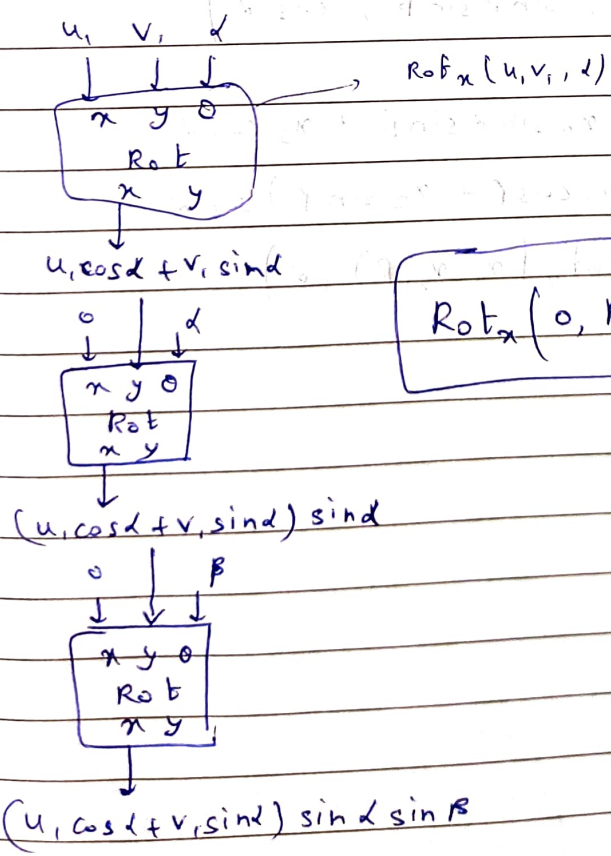 u₁ v₁ α
Rotx (u₁ v₁, α)
x y θ
Rot
x y
u₁cosα + v₁ sinα
0 α
Rotx (0,
x y θ
Rot
x y
(u₁cosα + v₁sinα) sinα
0 β
x y θ
Rot
x y
(u₁cosα + v₁sinα) sinα sinβ